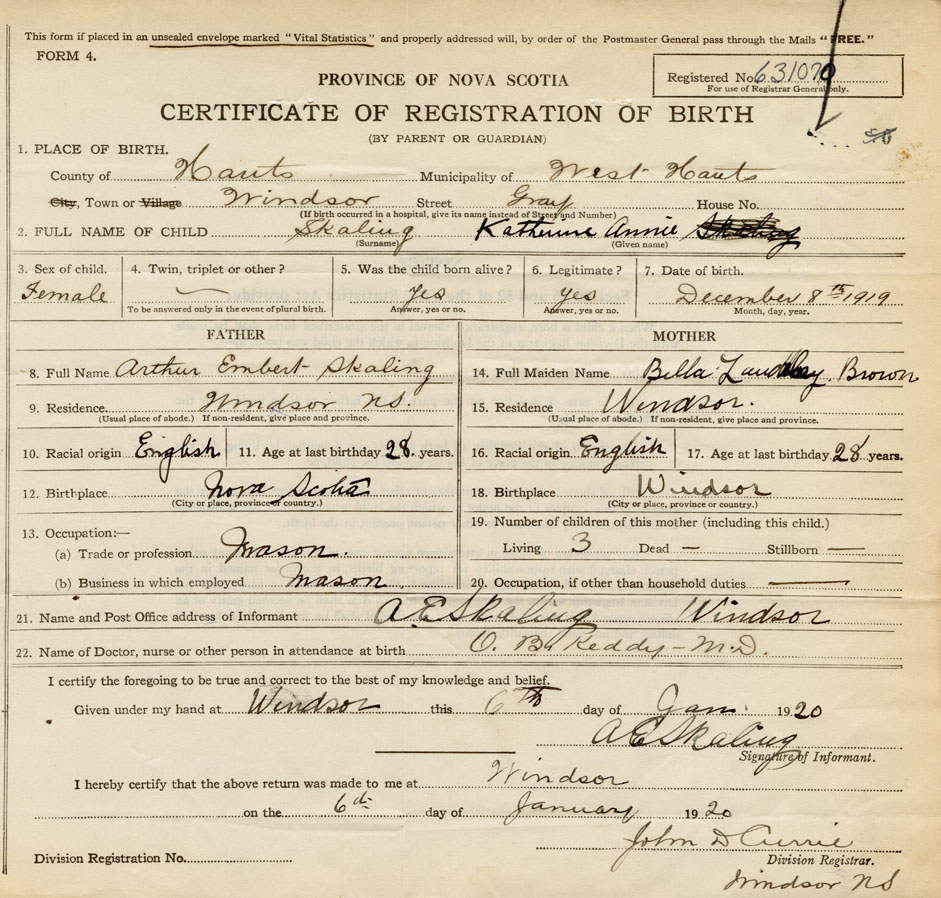 This form if placed in an unsealed envelope marked "Vital Statistics" and properly addressed will, by order of the Postmaster General pass through the Mails "FREE."
FORM 4.
Registered No. 631070
For use of Registrar General only.
PROVINCE OF NOVA SCOTIA
CERTIFICATE OF REGISTRATION OF BIRTH
(BY PARENT OR GUARDIAN)
1. PLACE OF BIRTH.
County of Hants Municipality of West Hants
City, Town or Village Windsor Street Gray House No.
(If birth occurred in a hospital, give its name instead of Street and Number)
2. FULL NAME OF CHILD Skaling Katherine Annie Skaling
(Surname) (Given name)
3. Sex of child. 4. Twin, triplet or other? 5. Was the child born alive? 6. Legitimate? 7. Date of birth.
Female — yes yes December 8th 1919
To be answered only in the event of plural birth. Answer, yes or no. Answer, yes or no. Month, day, year.
FATHER MOTHER
8. Full Name Arthur Embert Skaling 14. Full Maiden Name Bella Brown
9. Residence. Windsor NS 15. Residence Windsor.
(Usual place of abode.) If non-resident, give place and province. (Usual place of abode.) If non-resident, give place and province.
10. Racial origin English 11. Age at last birthday 28. years. 16. Racial origin English 17. Age at last birthday 28 years.
12. Birthplace Nova Scotia 18. Birthplace Windsor
(City or place, province or country.) (City or place, province or country.)
13. Occupation:— 19. Number of children of this mother (including this child.)
(a) Trade or profession Mason. Living 3 Dead — Stillborn —
(b) Business in which employed Mason 20. Occupation, if other than household duties —
21. Name and Post Office address of Informant A E Skaling Windsor
22. Name of Doctor, nurse or other person in attendance at birth O. B. Keddy – M.D.
I certify the foregoing to be true and correct to the best of my knowledge and belief.
Given under my hand at Windsor this 6th day of Jan. 1920
A E Skaling
Signature of Informant.
I hereby certify that the above return was made to me at Windsor
on the 6th day of January 1920
John D Currie
Division Registration No. Division Registrar.
Windsor NS